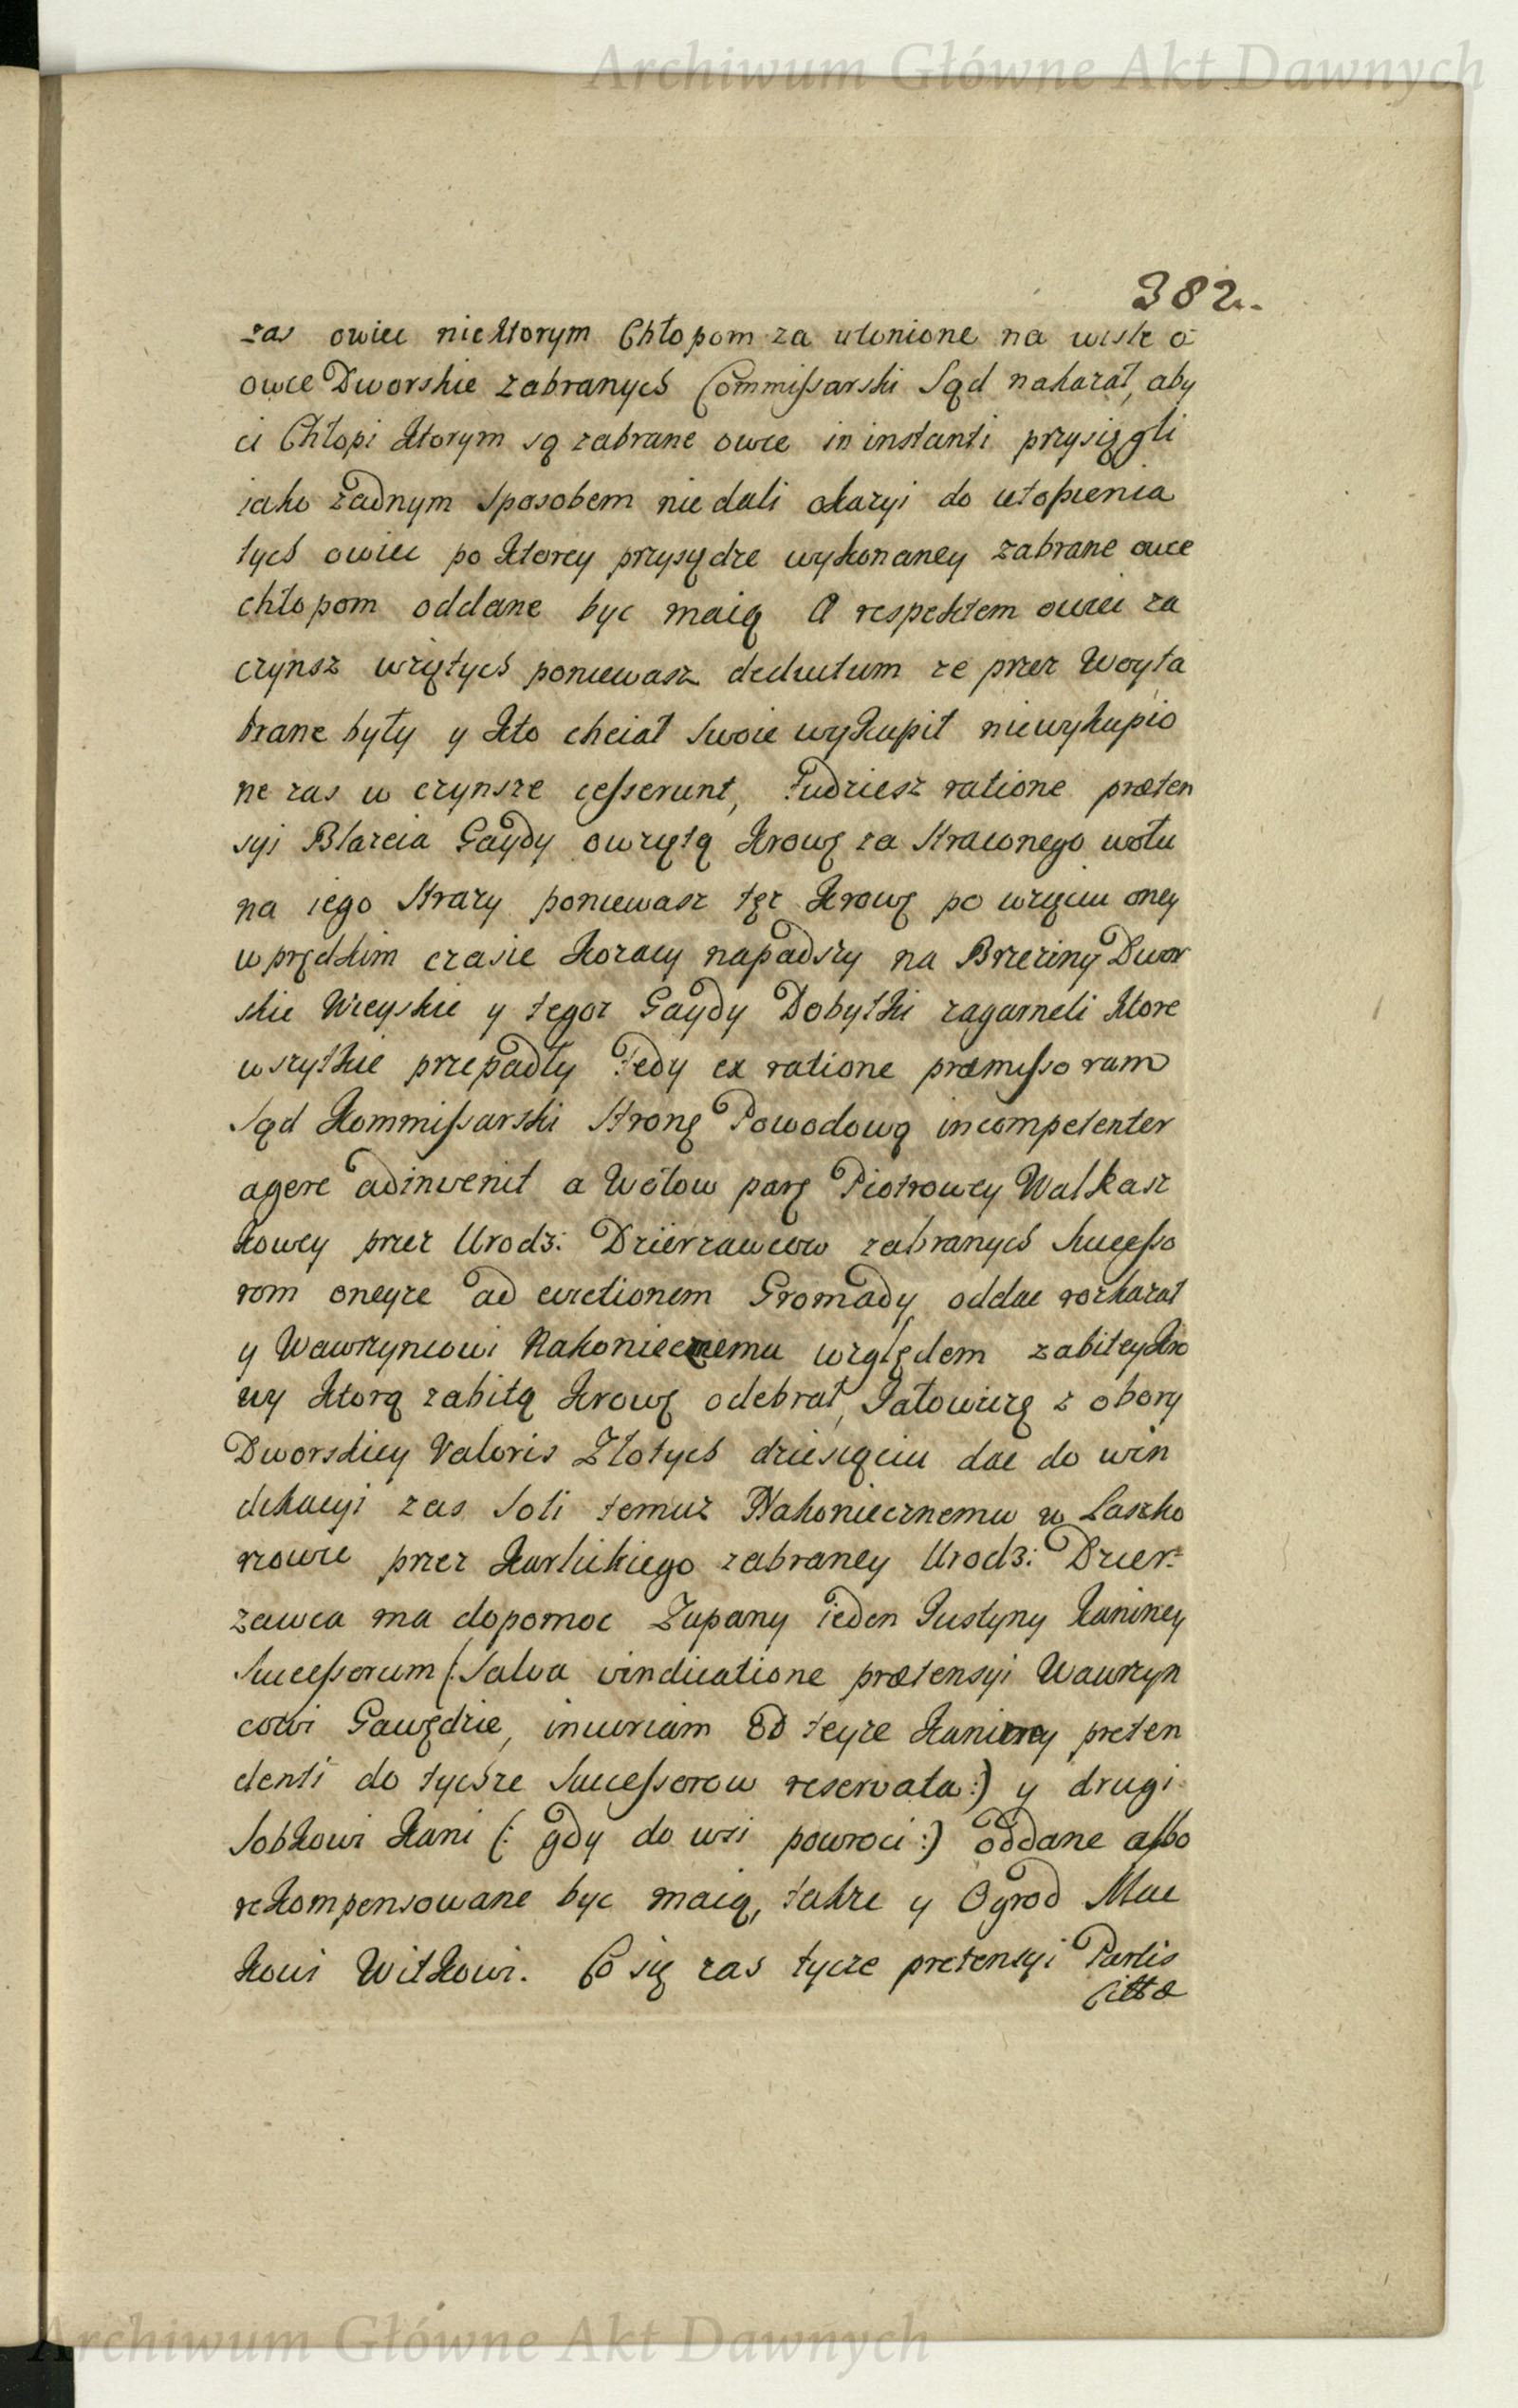 Archiwum Główne Akt Dawnych
382.
zas owiec niektorym Chłopom za utonione na wisle
owce Dworskie zabranych Commissarski Sąd nakazał, aby
ci Chłopi ktorym są zabrane owce in instanti przysięgli
iako żadnym sposobem nie dali okazyi do utopienia
tych owiec po ktorey przysiędze wykonaney zabrane owce
chłopom oddane byc maią A respektem owiec za
czynsz wziętych poniewasz deductum ze przez Woyta
brane były y kto chciał swoie wykupił niewykupio
ne zas w czynsze cesserunt, Tudziesz ratione præten
syi Błazeia Gaydy o wziętą krowę za straconego wołu
na iego straży poniewasz tęz krowę po wzięciu oney
w prędkim czasie kozacy napadszy na Brzeziny Dwor
skie Wieyskie y tegoz Gaydy Dobytki zagarneli ktore
wszytkie przepadły Tedy ex ratione præmissorum
Sąd Kommissarski stronę Powodową incompetenter
agere adinvenit a Wołow parę Piotrowey Walkasz
kowey przez Urodz: Dzierzawcow zabranych Successo
rom oneyze ad evictionem Gromady oddac rozkazał
y Wawrzyncowi Nakoniecznemu względem zabitey kro
wy ktorą zabitą krowę odebrał, Jałowicę z obory
Dworskiey Valoris Złotych dziesięciu dac do win
dikacyi zas soli temuz Nakoniecznemu w Laszko
rzowie przez Karlickiego zabraney Urodz: Dzier=
zawca ma dopomoc Zupany ieden Justyny Kaniney
Successorum (: salva vindicatione prætensyi Wawrzyn
cowi Gawędzie, iniuriam od teyze Kaniney preten
denti do tychze Successorow reservata :) y drugi
Sobkowi Kani (: gdy do wsi powroci :) oddane albo
rekompensowane byc maią, takze y Ogrod Mac
kowi Witkowi. Co się zas tycze pretensyi Partis
Cittæ
Archiwum Główne Akt Dawnych